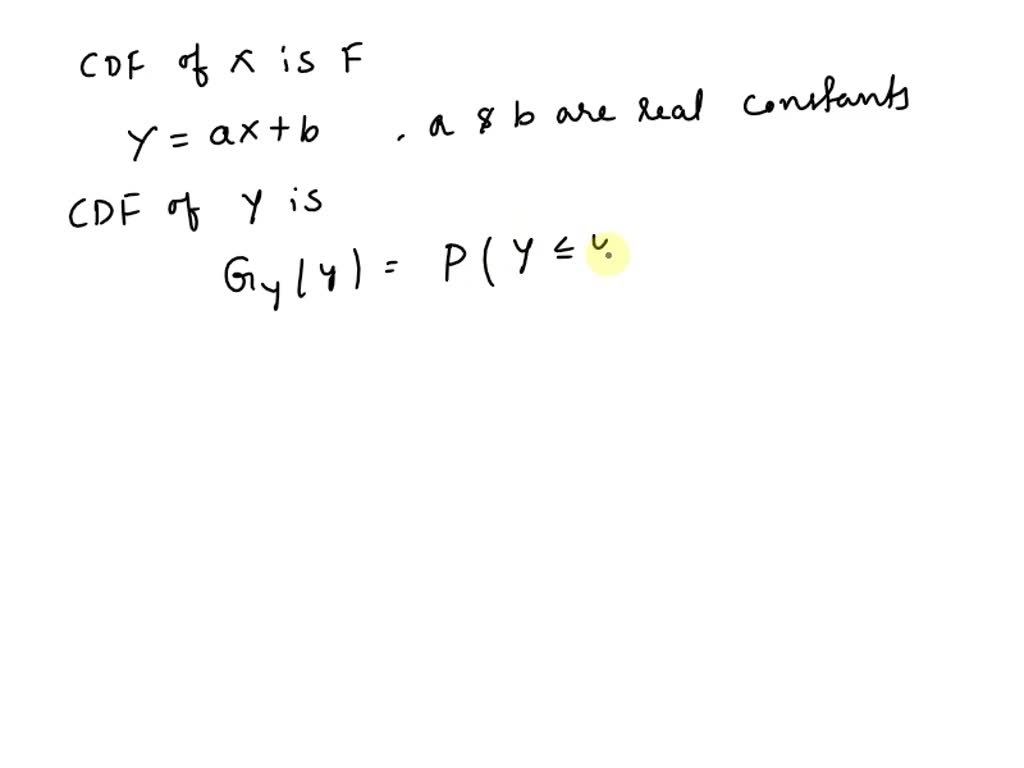 CDF of X is F
Y = ax + b , a & b are real constants
CDF of Y is
G_Y(y) = P(Y ≤